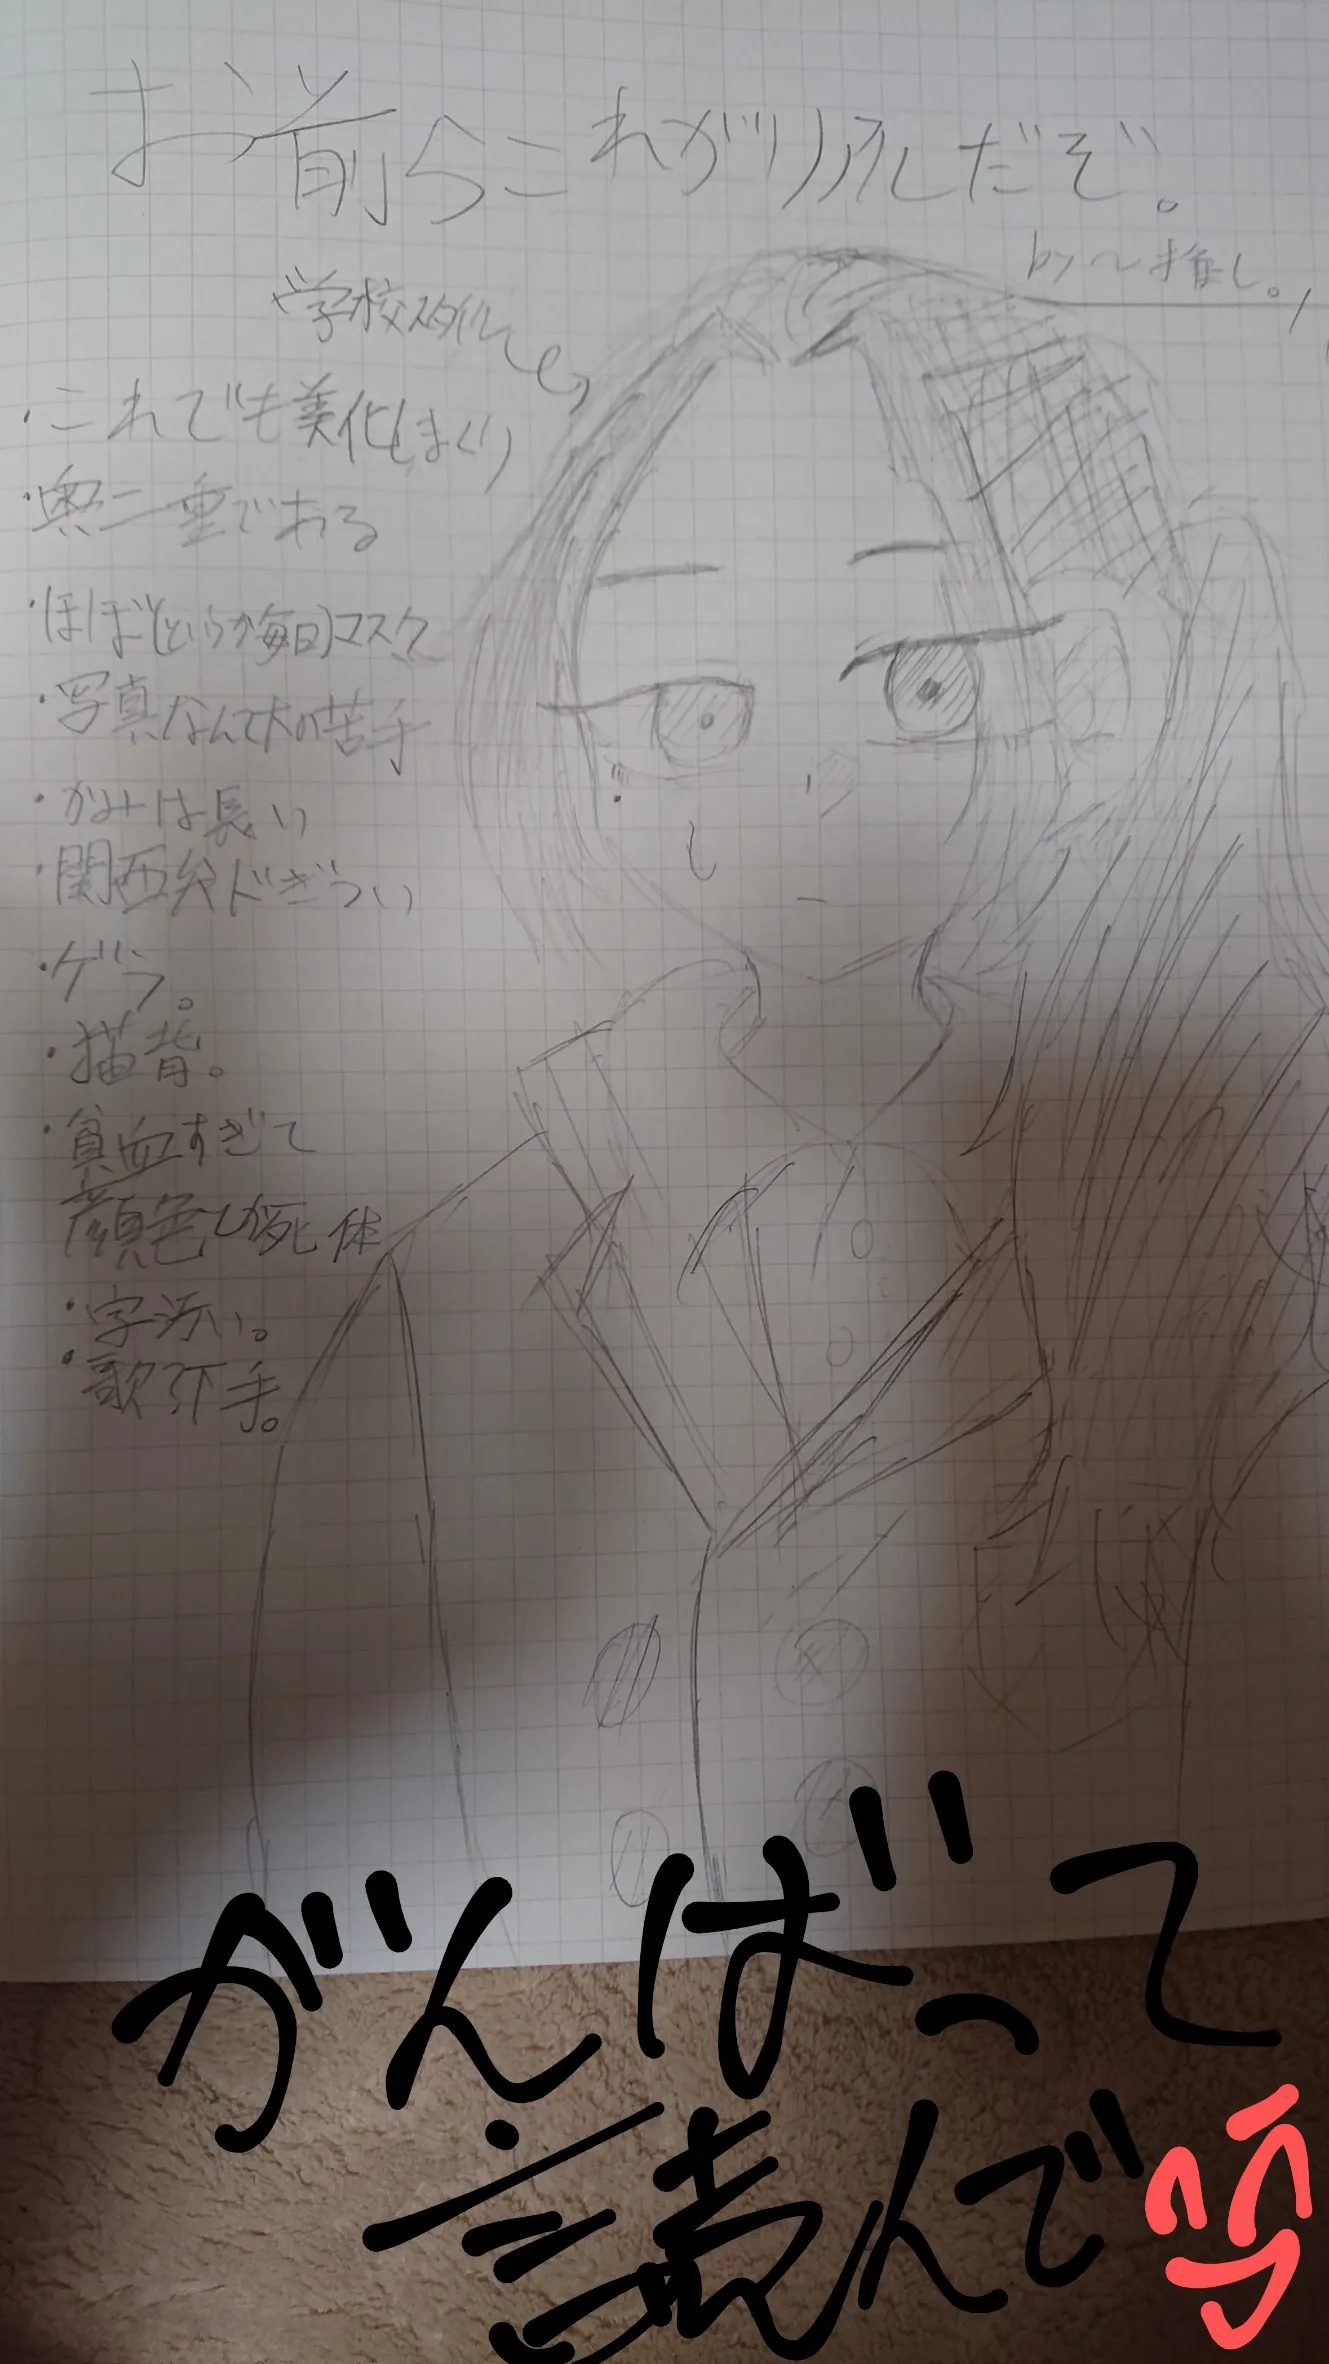 お前らこれがリアルだぞ。
by~推し。
学校スタイル
・これでも美化しまくり
・奥二重である
・ほぼ(というか毎日)マスク
・写真なんて大の苦手
・かみは長い
・関西弁ドぎつい
・ゲラ。
・猫背。
・貧血すぎて
顔色しか死体
・字汚い。
・歌下手。
がんばって
読んで